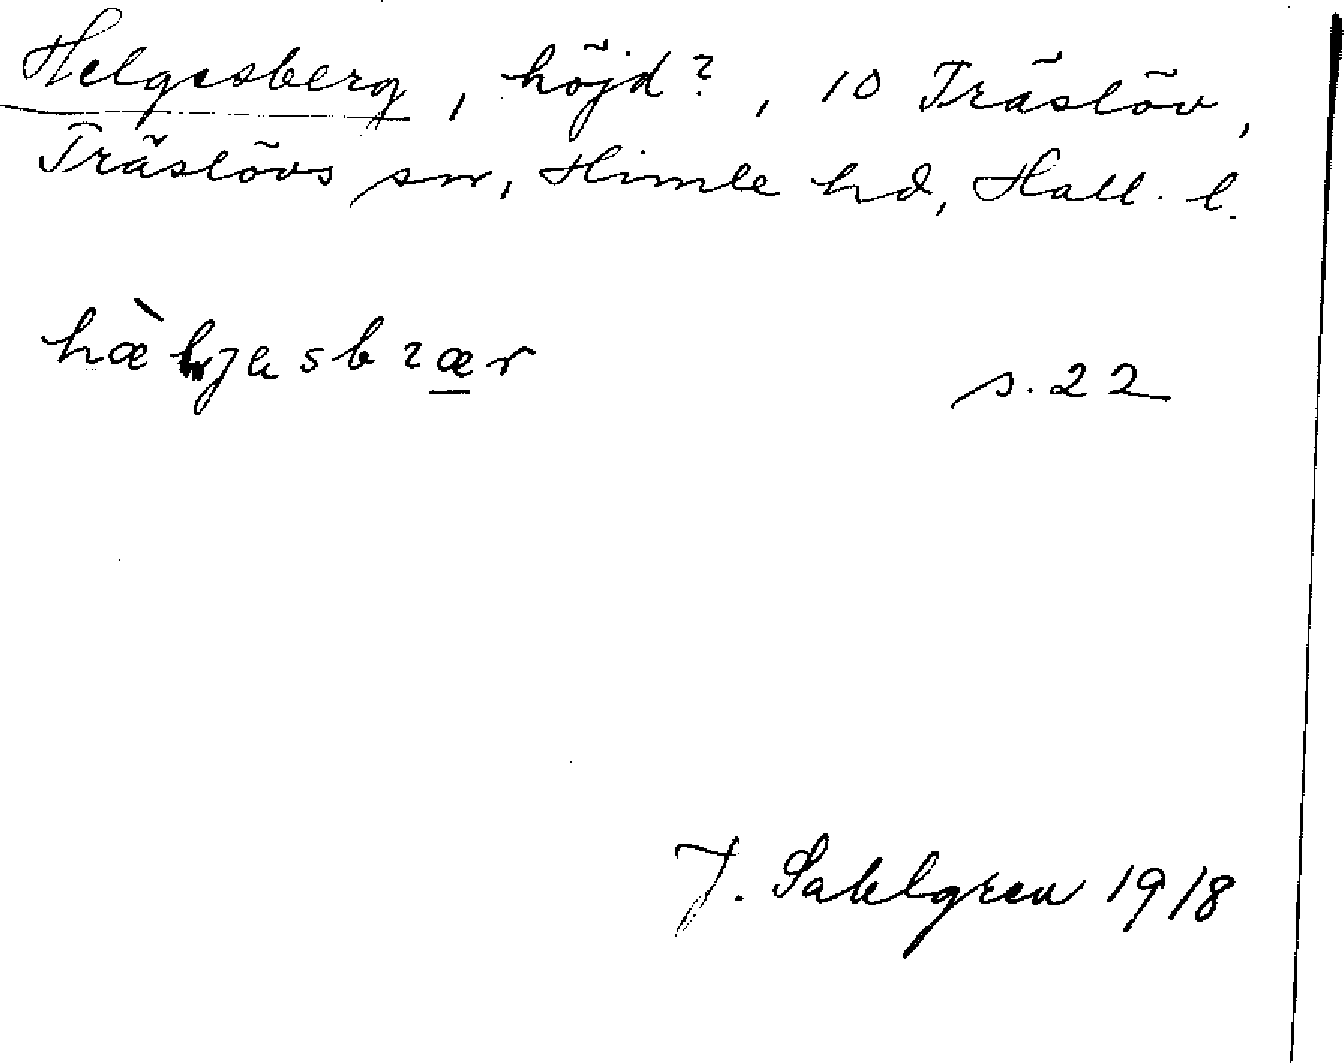 Helgesberg, höjd?, 10 Träslöv,
Träslövs sn, Himle hd, Hall. l.
s. 22
J. Sahlgren 1918